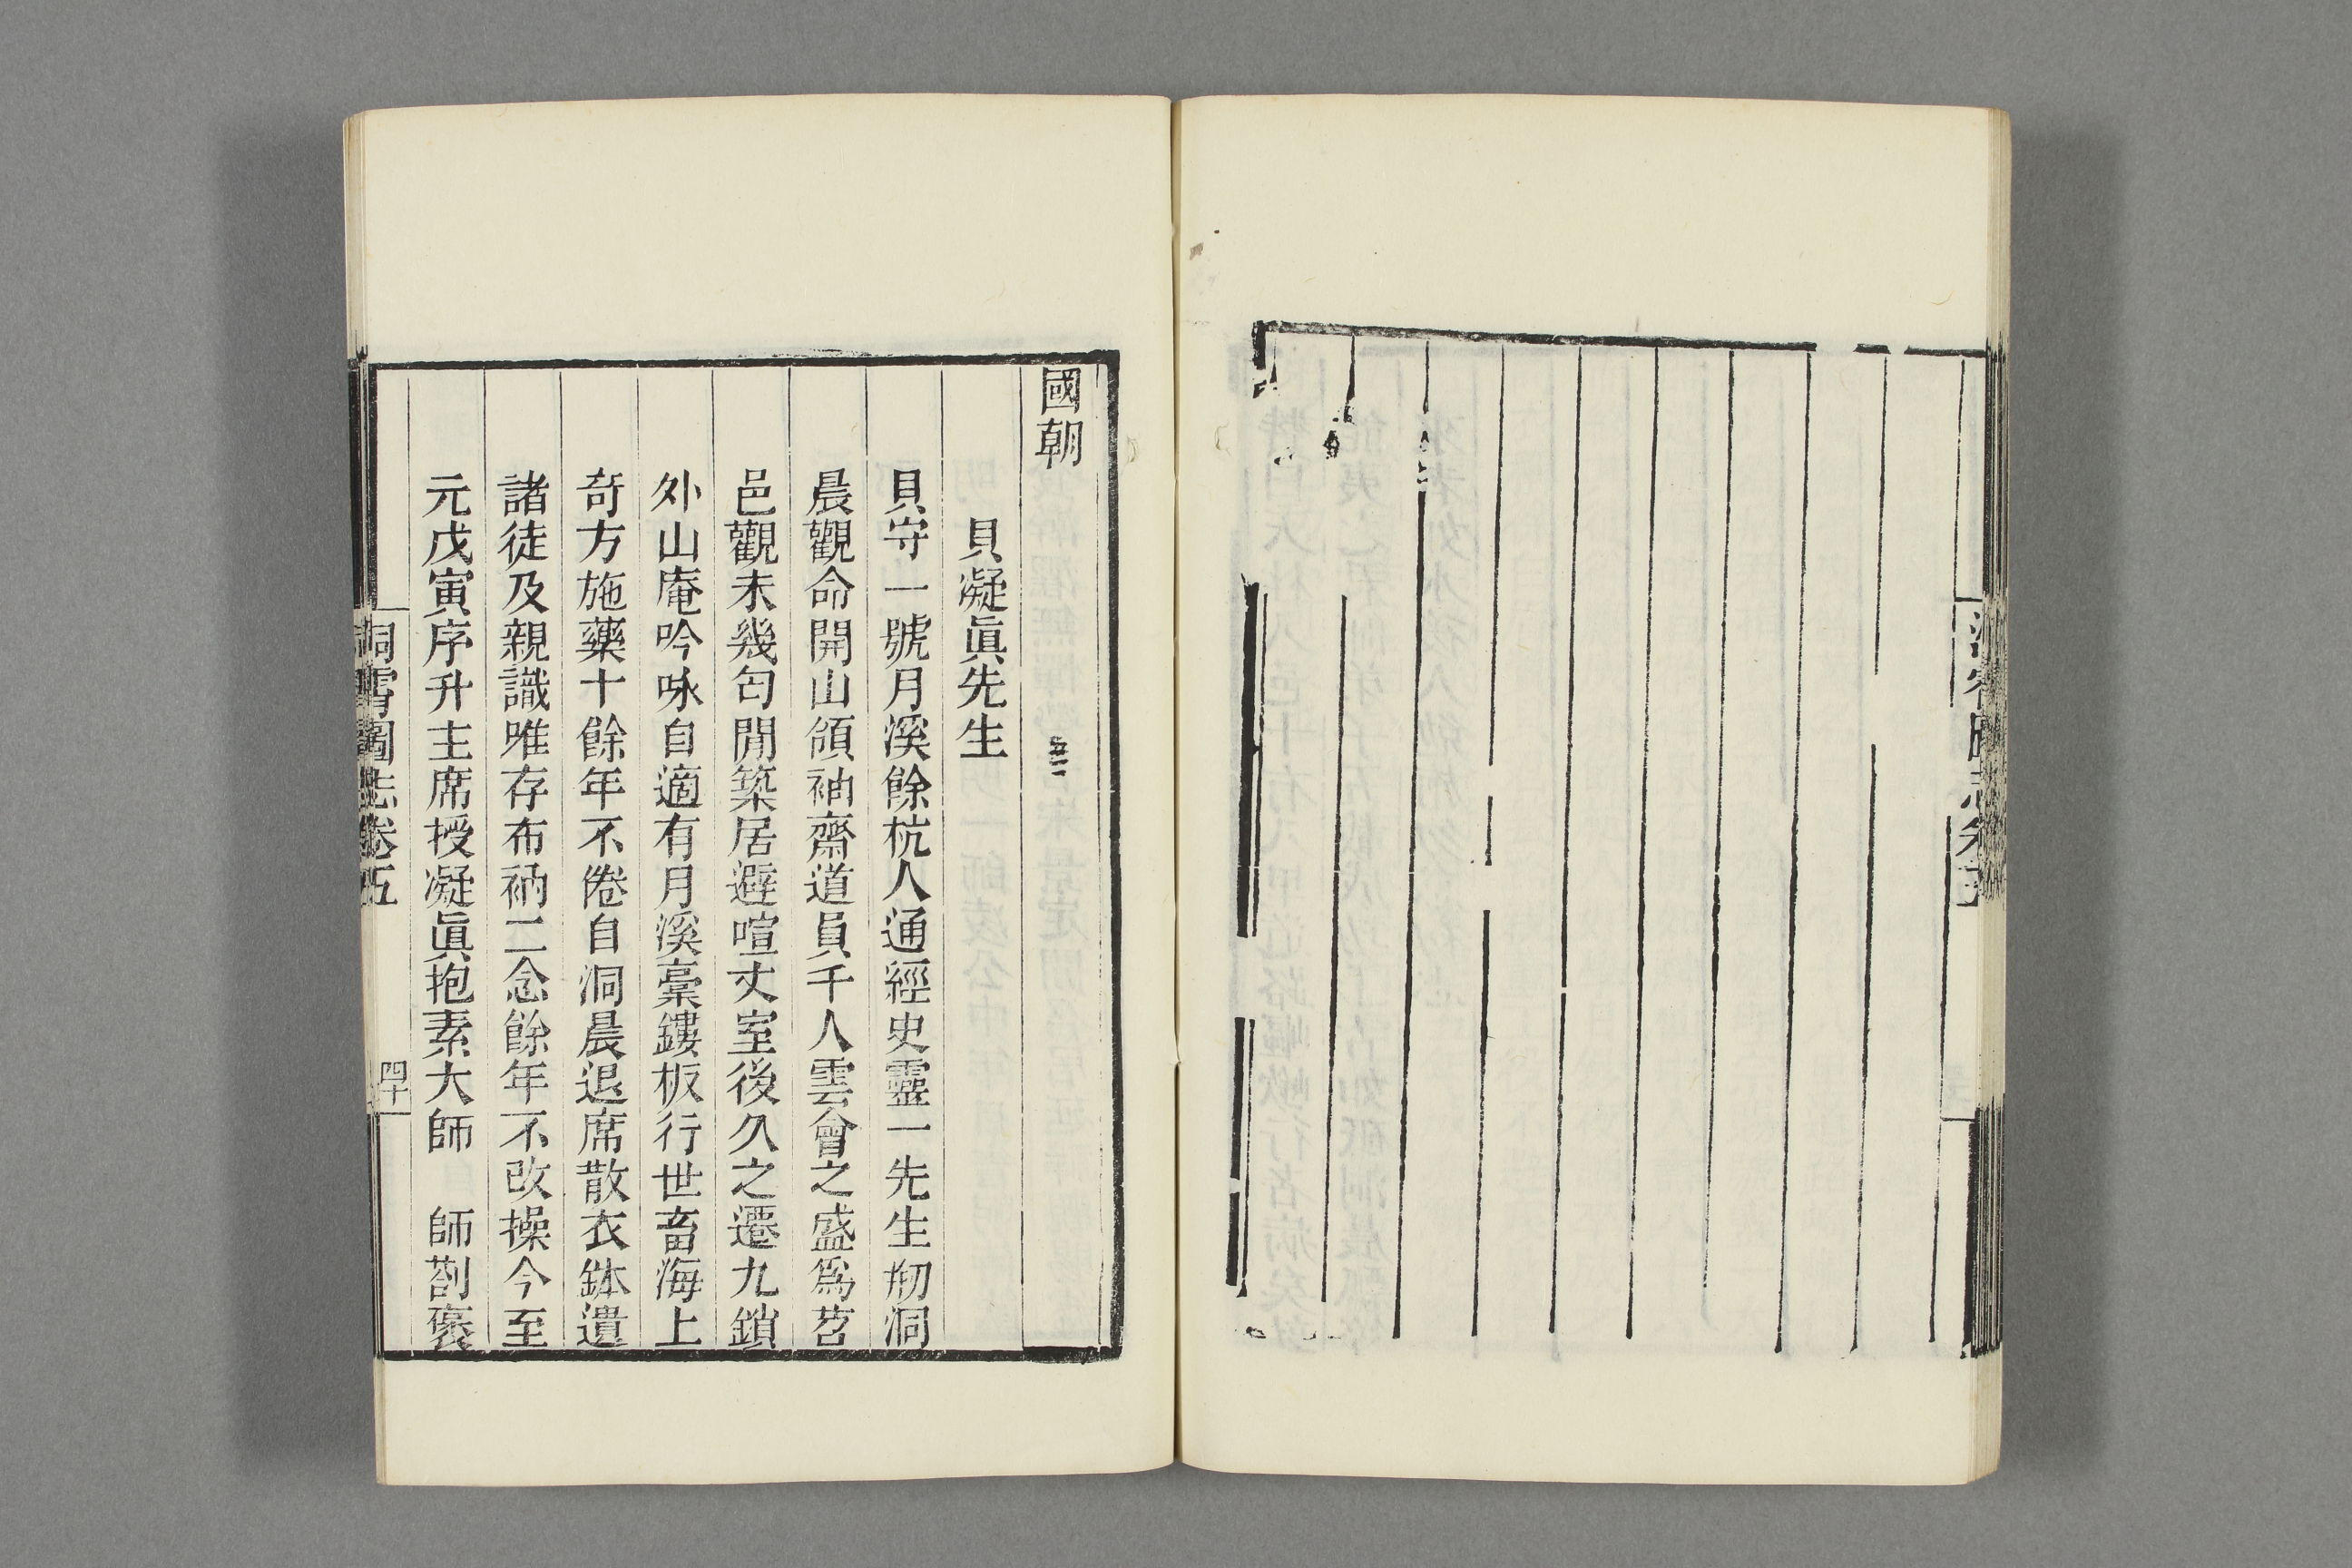 國朝
貝凝眞先生
貝守一號月溪餘杭人通經史靈一先生剏洞
晨觀命開山領袖齋道員千人雲會之盛爲苕
邑觀未幾匄閒築居避喧丈室後久之遷九鎖
外山庵吟咏自適有月溪稾鏤板行世畜海上
奇方施藥十餘年不倦自洞晨退席散衣鉢遺
諸徒及親識唯存布衲二念餘年不改操今至
元戊寅序升主席授凝眞抱素大師　師劄褒
洞霄圖志卷五
四十